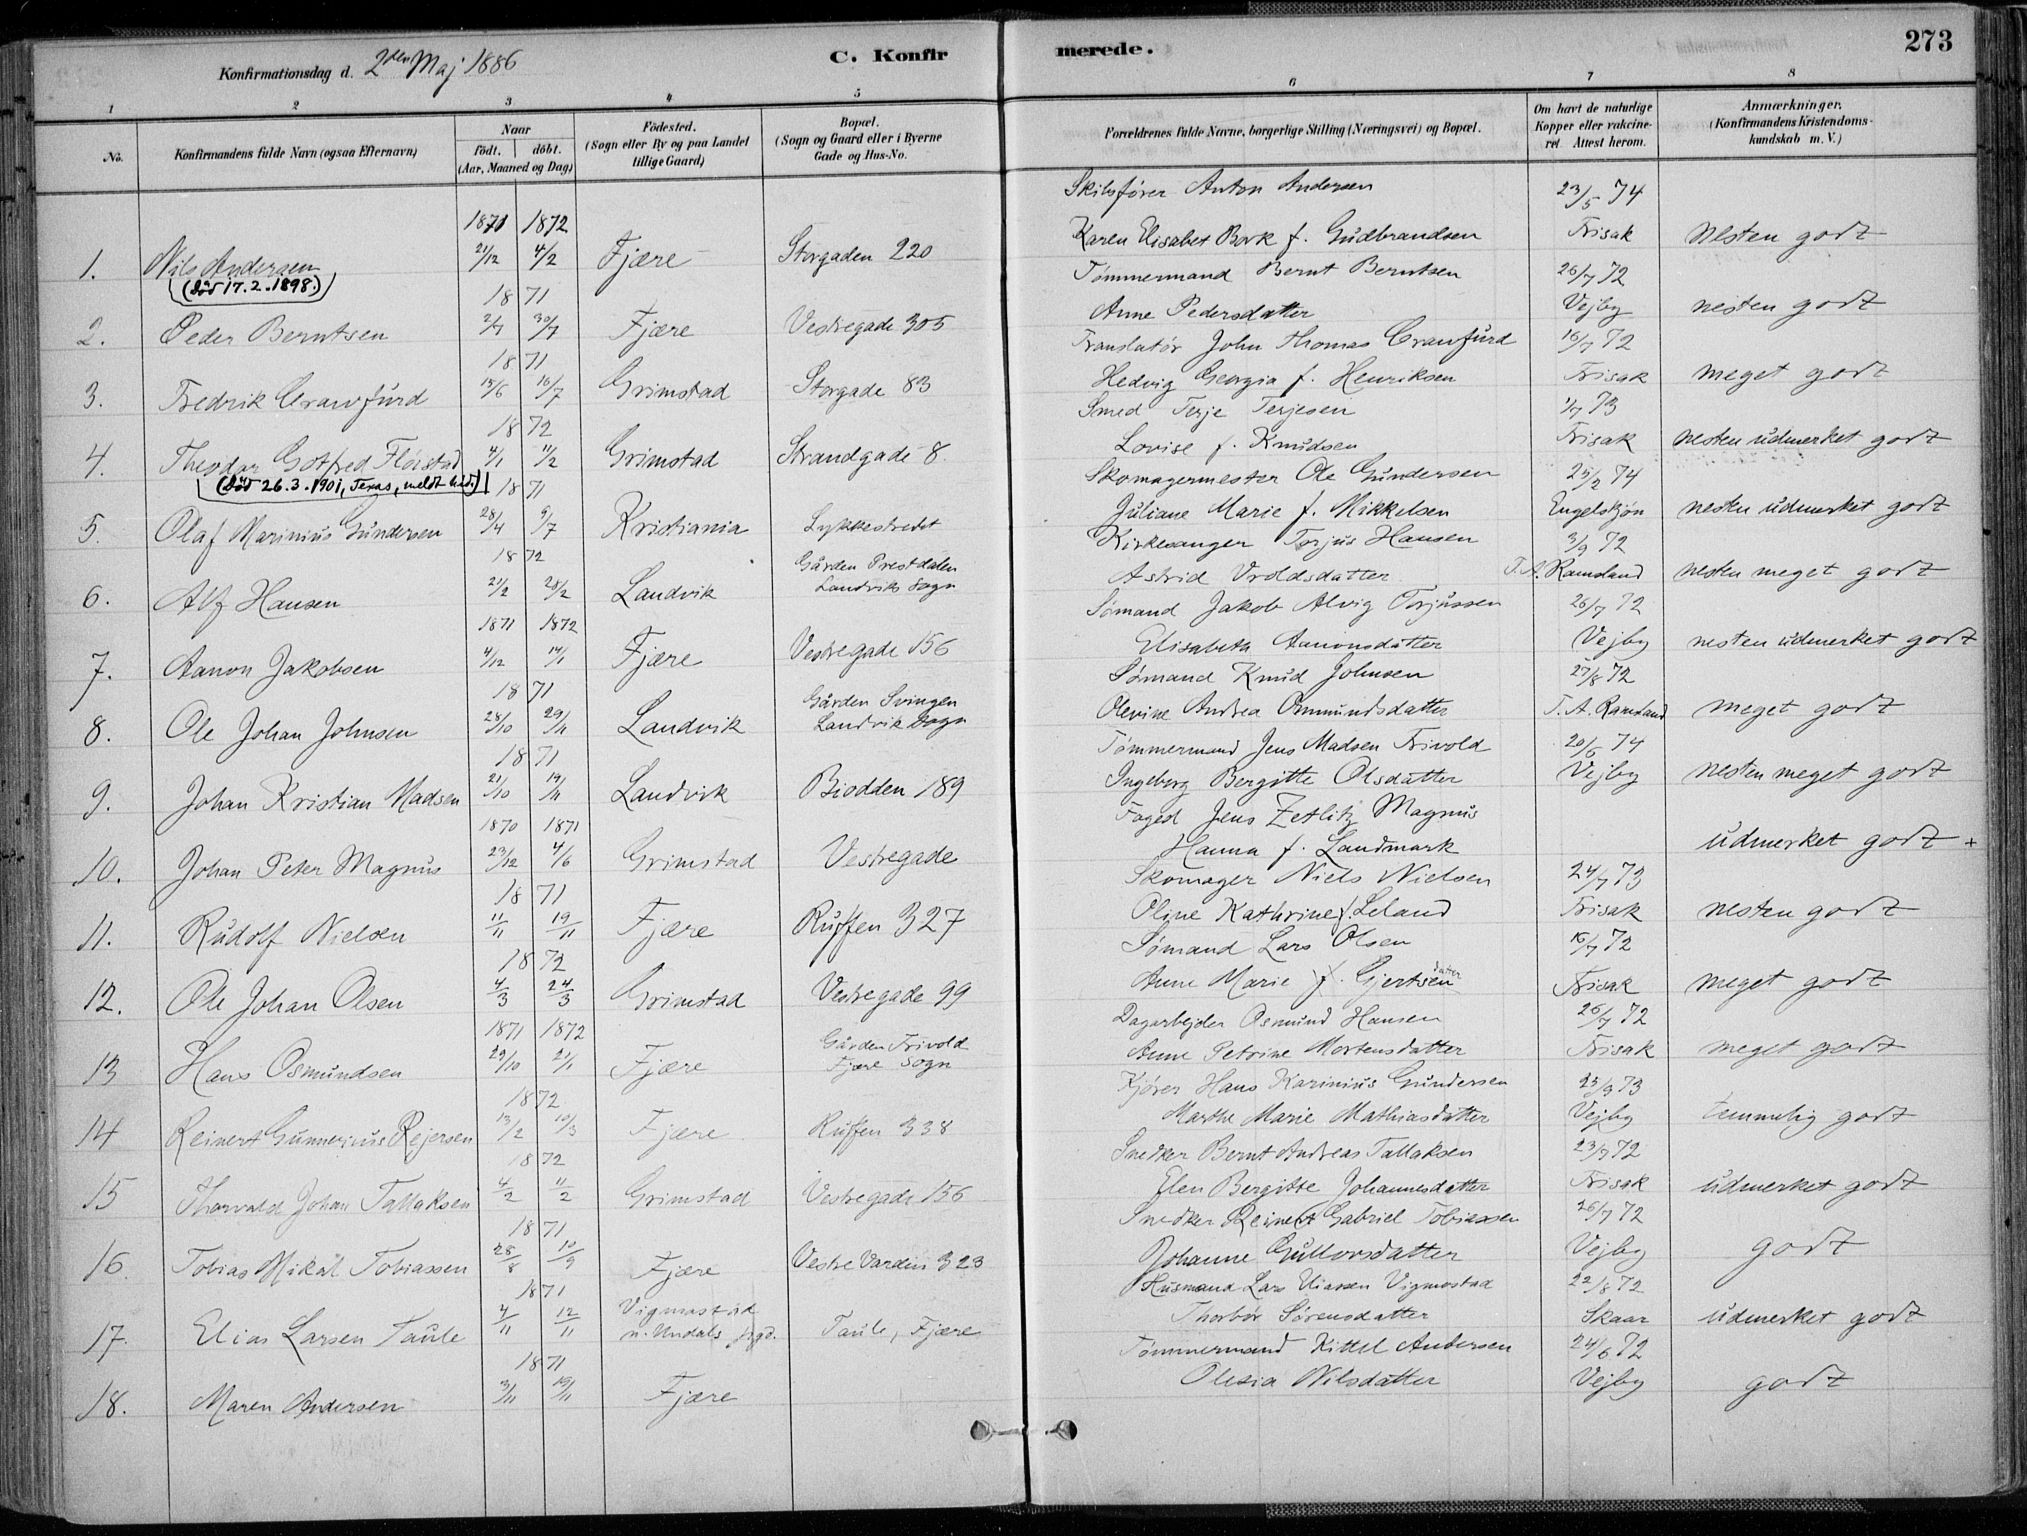 273
C. Konfirmerede.
Konfirmationsdag d. 2den Maj 1886
1 2 3 4 5 6 7 8
No. Konfirmandens fulde Navn (ogsaa Efternavn) Naar født. døbt. (Aar, Maaned og Dag) Födested. (Sogn eller By og paa Landet tillige Gaard) Bopæl. (Sogn og Gaard eller i Byerne Gade og Hus-No. Forældrenes fulde Navne, borgerlige Stilling (Næringsvei) og Bopæl. Om havt de naturlige Kopper eller vakcineret. Attest herom. Anmærkninger. (Konfirmandens Kristendomskundskab m. V.)
Skibsfører Anton Andersen 23/5 74
1871 1872
1. Nils Andersen 21/12 4/2 Fjære Storgaden 220 Karen Elisabet Bork f. Gudbrandsen Frisak nesten godt
(død 17.2.1898.)
Tømmermand Bernt Berntsen 26/7 72
1871
2. Peder Berntsen 2/7 30/7 Fjære Vestregade 305 Anne Pedersdatter Vejby nesten godt
Translatør John Thomas Crawfurd 16/7 72
1871
3. Fredrik Crawfurd 15/6 16/7 Grimstad Storgade 83 Hedvig Georgia f. Henriksen Frisak meget godt
Smed Terje Terjesen 1/7 73
1872
4. Theodor Gotfred Fløistad 4/1 11/2 Grimstad Strandgade 8 Lovise f. Knudsen Frisak nesten udmerket godt
(død 26.3.1901, Texas, meldt hid.)
Skomagermester Ole Gundersen 25/2 74
1871
5. Olaf Marinius Gundersen 28/4 9/7 Kristiania Lykkestredet Juliane Marie f. Mikkelsen Engelskjøn nesten udmerket godt
Kirkesanger Torjus Hansen 3/9 72
1872
6. Alf Hansen 21/2 28/2 Landvik Gården Prestdalen Landviks Sogn Astrid Vroldsdatter T. A. Ramsland nesten meget godt
Sømand Jakob Alvig Torjussen 26/7 72
1871 1872
7. Aanon Jakobsen 4/12 14/1 Fjære Vestregade 156 Elisabeth Aanonsdatter Vejby nesten udmerket godt
Sømand Knud Johnsen 27/8 72
1871
8. Ole Johan Johnsen 28/10 29/11 Landvik Gården Svingen Landvik Sogn Olevine Andrea Ommundsdatter T. A. Ramsland meget godt
Tømmermand Jens Madsen Frivold 20/6 74
1871
9. Johan Kristian Madsen 21/10 19/11 Landvik Biodden 189 Ingeborg Bergitte Olsdatter Vejby nesten meget godt
Foged Jens Zetlitz Magnus
1870 1871
10. Johan Peter Magnus 23/12 4/6 Grimstad Vestregade Hanna f. Landmark udmerket godt +
Skomager Niels Nielsen 24/7 73
1871
11. Rudolf Nielsen 11/11 19/11 Fjære Ruffen 327 Oline Kathrine f. Leland Frisak nesten godt
Sømand Lars Olsen 16/7 72
1872
12. Ole Johan Olsen 4/3 24/3 Grimstad Vestregade 99 Anne Marie f. Gjertsen datter Frisak meget godt
Dagarbejder Osmund Hansen 26/7 72
1871 1872
13 Hans Osmundsen 29/10 21/1 Fjære Gården Frivold Fjære Sogn Anne Petrine Mortensdatter Frisak meget godt
Kjører Hans Karinius Gundersen 25/9 73
1872
14 Reinert Gunnerius Rejersen 13/2 10/3 Fjære Ruffen 338 Marthe Marie Mathiasdatter Vejby temmelig godt
Snedker Bernt Andreas Tallaksen 23/7 72
1872
15 Thorvald Johan Tallaksen 4/2 11/2 Grimstad Vestregade 156 Elen Bergitte Johannesdatter Frisak udmerket godt
Snedker Reinert Gabriel Tobiassen 26/7 72
1871
16. Tobias Mikal Tobiassen 28/8 10/9 Fjære Vestre Varden 323 Johanne Gullovsdatter Vejby godt
Husmand Lars Eliassen Vigmostad 22/8 72
1871
17. Elias Larsen Taule 4/11 12/11 Vigmostad n. Undals prgd. Taule, Fjære Thorbør Sørensdatter Skaar udmerket godt
Tømmermand Kittel Andersen 24/6 72
1871
18. Maren Andersen 3/11 19/11 Fjære Olesia Nilsdatter Vejby godt